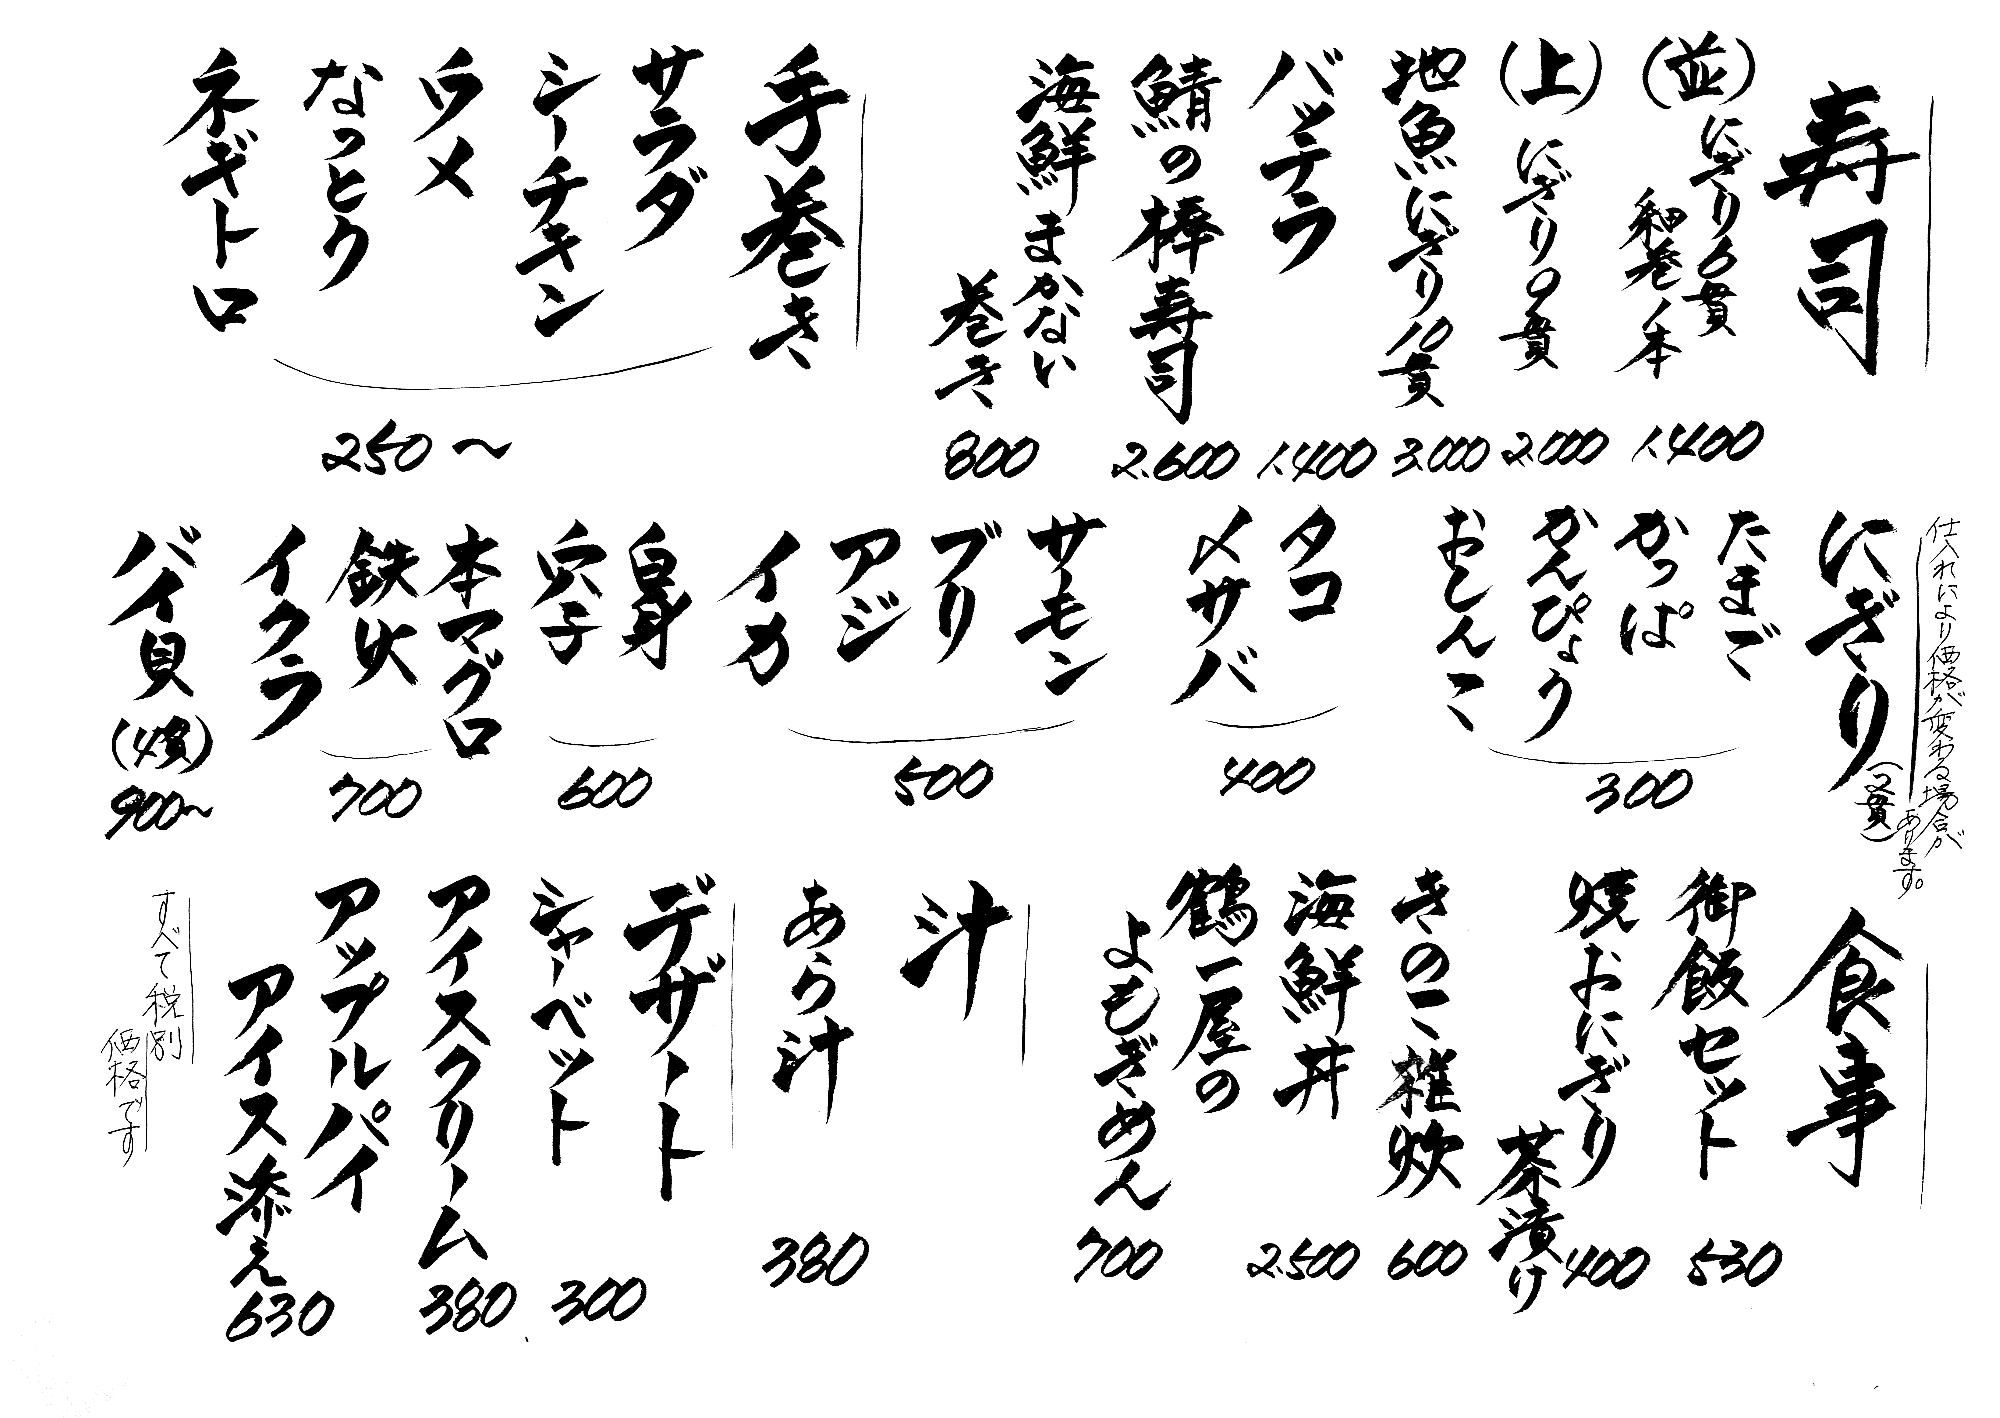 寿司
(並)にぎり6貫
細巻1本
1.400
(上)にぎり9貫
2.000
地魚にぎり10貫
3.000
バッテラ
1.400
鯖の棒寿司
2.600
海鮮まかない
巻き
800
手巻き
サラダ
シーチキン
ウメ
なっとう
ネギトロ
250〜
にぎり(2貫)
仕入れにより価格が変わる場合が
あります。
たまご
かっぱ
かんぴょう
おしんこ
300
タコ
〆サバ
400
サーモン
ブリ
アジ
イカ
500
白身
穴子
600
本マグロ
鉄火
700
イクラ
バイ貝(4貫)
900〜
食事
御飯セット
530
焼おにぎり
茶漬け
400
きのこ雑炊
600
海鮮丼
2.500
鶴一屋の
よもぎめん
700
汁
あら汁
380
デザート
シャーベット
300
アイスクリーム
380
アップルパイ
アイス添え
630
すべて税別
価格です